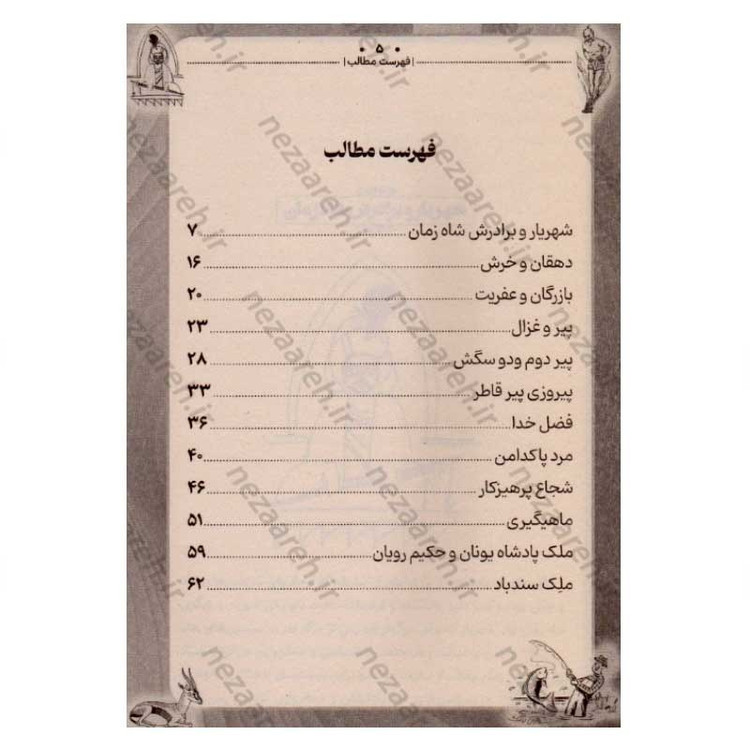 ۵
فهرست مطالب
فهرست مطالب
شهریار و برادرش شاه زمان ۷
دهقان و خرش ۱۶
بازرگان و عفریت ۲۰
پیر و غزال ۲۳
پیر دوم ودو سگش ۲۸
پیروزی پیر قاطر ۳۳
فضل خدا ۳۶
مرد پاکدامن ۴۰
شجاع پرهیزکار ۴۶
ماهیگیری ۵۱
ملک پادشاه یونان و حکیم رویان ۵۹
ملِک سندباد ۶۲
nezaareh.ir